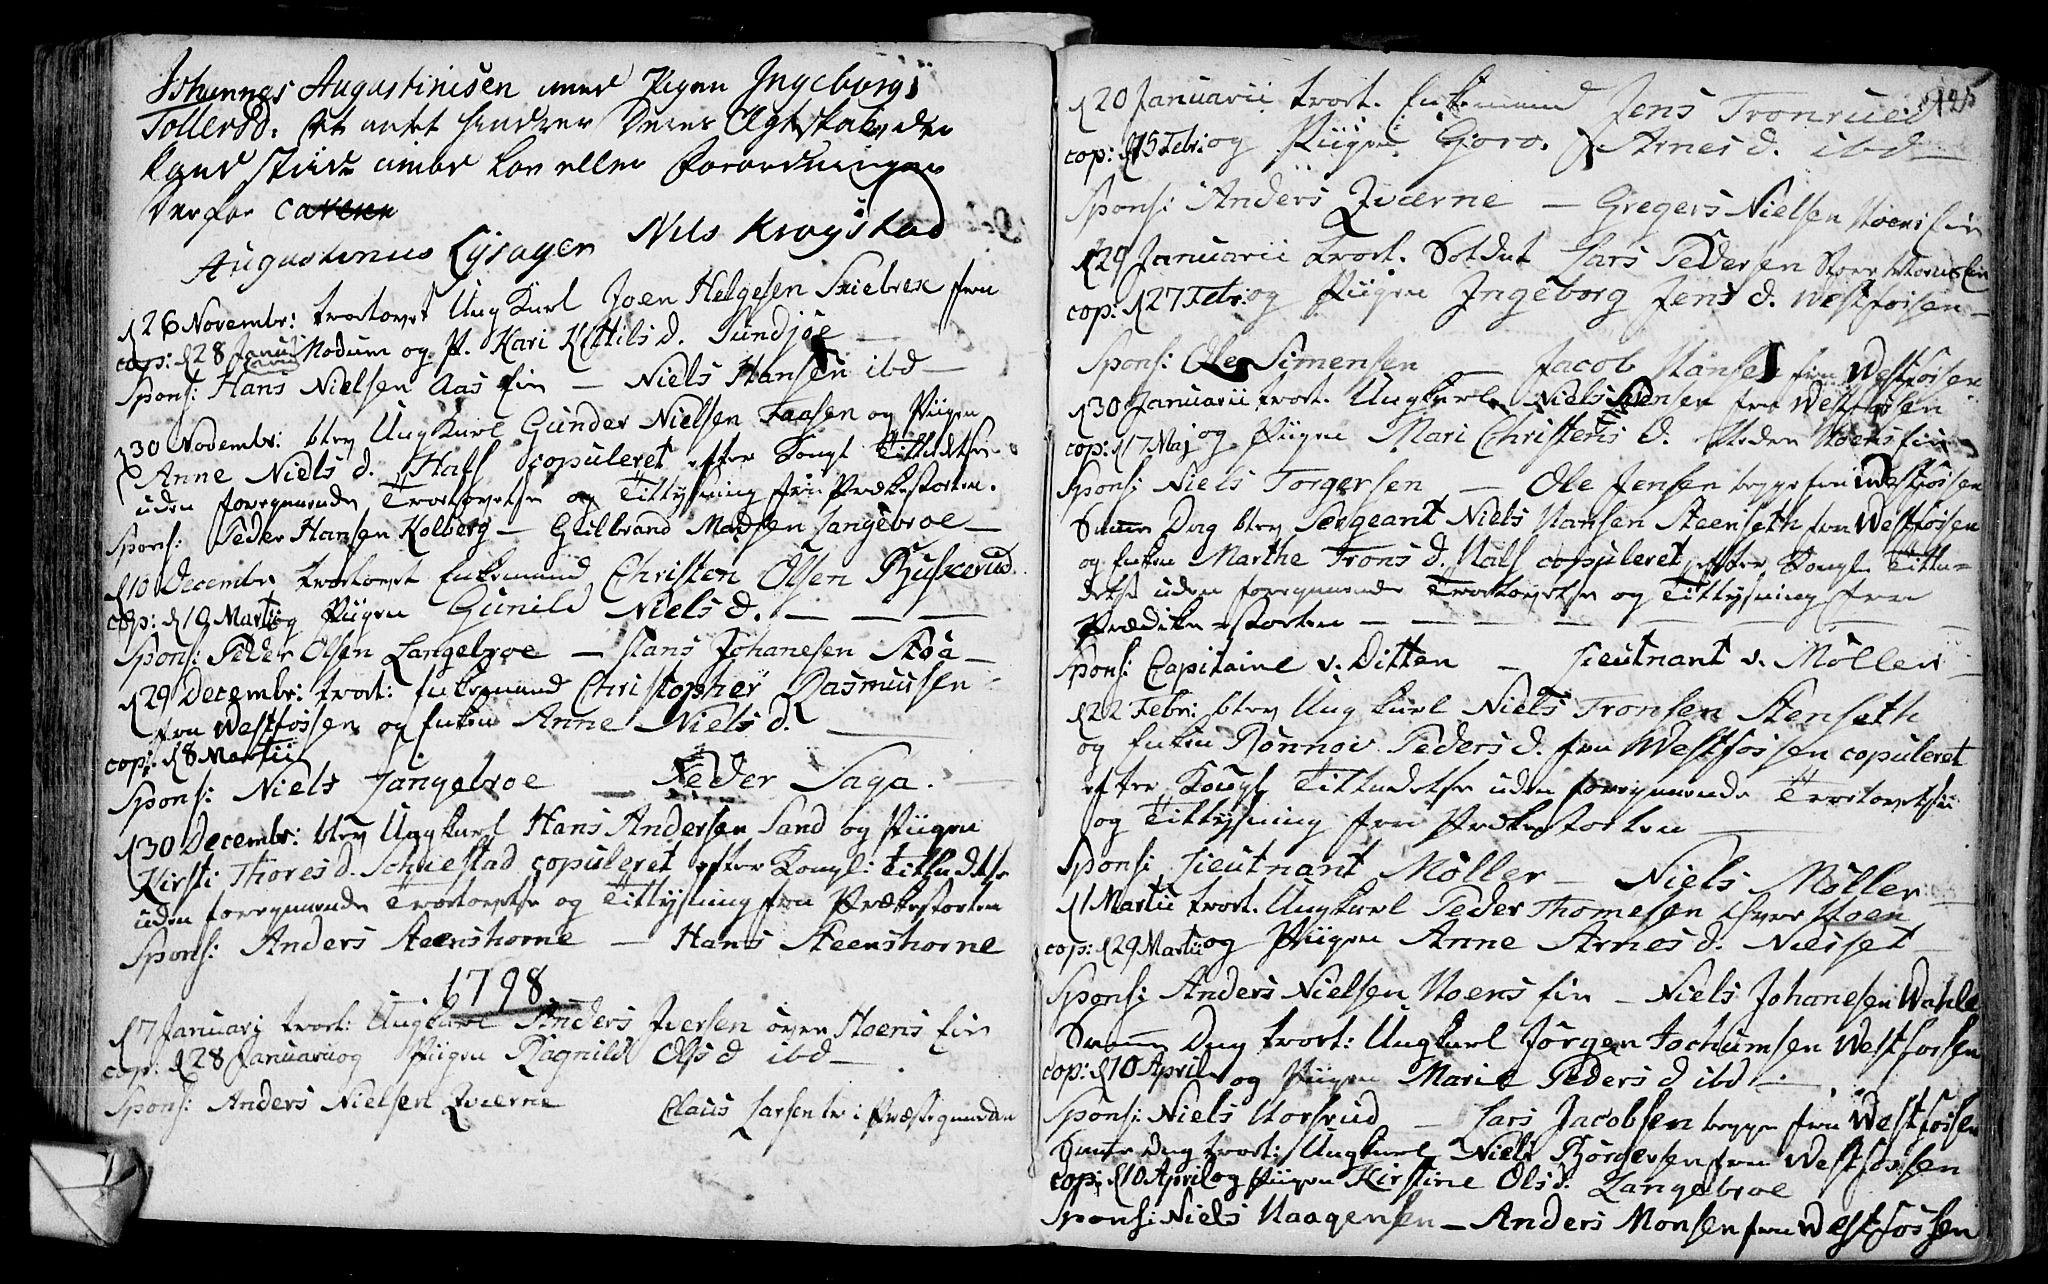 Johannes Augustinusen med Pigen Ingeborg
Tollefsd. At intet hindrer Deres Ægteskab, der
kand stride imod Lov eller Forordninger
Derfor caverer
Augustinus Lysager Nils Kragstad
d 26 Novembr: trolovet Ung Karl Joen Helgesen Skiebrek fra
cop: d 28 Januj Modum og P. Kari Kittilsd. Sundjoe
Spons: Hans Nielsen Aas Eir — Niels Hansen ibd —
d 30 Novembr: blev Ung Karl Gunder Nielsen Faasen og Piigen
Anne Nielsd. Hals copuleret efter Kongl Tilladelse
uden foregaaende Trolovelse og Tillysning fra Prækestolen.
Spons: Peder Hansen Kolberg — Gulbrand Madsen Langebroe —
d 10 Decembr trolovet Enkemand Christen Olsen Buskerud.
cop: d 19 Martii og Piigen Gunild Nielsd. — — —
Spons: Peder Olsen Langebroe — Hans Johanesen Stöa —
d 29 Decembr: trol: Enkemand Christopher Rasmusen
fra Westfossen og Enken Anne Nielsd. —
cop: d 8 Martii
Spons: Niels Langebroe — Peder Saga. —
d 30 Decembr: blev Ungkarl Hans Andersen Sand og Piigen
Kirsti Thoresd. Schiestad copuleret efter Kongl: Tilladelse
uden foregaaende Trolovelse og Tillysning fra Prækestolen
Spons: Anders Steenshorne — Hans Steenshorne
1798
d 7 Januarj trol: Ungkarl Anders Iversen övre Hoens Eir
cop: d 28 Januarii og Piigen Ragnild Olsd ibd —
Spons: Anders Nielsen Qværne Claus Larsen i Præstegaarden
125
d 20 Januarii trol. Enkemand Jens Tronrued
cop: d 15 Febr: og Piigen Gjoro. Arnesd. ibd —
Spons: Anders Qværne — Gregers Nielsen Hoens Eir
d 29 Januarii trol. Soldat Lars Pedersen Store
cop: d 27 Febr: og Piigen Ingeborg Jensd. Westfossen —
Spons: Ole Simensen — Jacob Hansen fra Westfossen
d 30 Januarii trol. Ungkarl Niels fra Westfossen
cop: d 17 Maj og Piigen Mari Christensd. Neden Hoens Eir
Spons: Niels Torgersen — Ole Jensen begge fra Westfossen
Samme Dag blev Sergeant Niels Hansen Steenseth fra Westfossen
og Enken Marthe Tronsd. Hals copuleret efter Kongl. Tilla=
delse uden foregaaende Trolovelse og Tillysning fra
Prædike-stolen — — — — — — —
Spons: Capitaine v. Ditten — Lieutnant v. Möller —
d 22 Febr: blev Ung karl Niels Tronsen Stenseth
og Enken Rönnov Pedersd. fra Westfossen copuleret
efter Kongl Tilladelse uden foregaaende Trolovelse
og Tillysning fra Prækestolen —
Spons: Lieutnant Möller — Niels Möller
d 1 Martii trol. Ungkarl Peder Thomesen Hoen
cop: d 29 Martii og Piigen Anne Arnesd. Næsset —
Spons: Anders Nielsen Hoens Eir — Niels Johanesen Wahle
Samme Dag trol: Ungkarl Jörgen Jochumsen Westfossen
cop: d 10 April og Piigen Marie Pedersd ibd —
Spons: Niels Horsrud — Lars Jacobsen begge fra Westfossen
Samme Dag trol: Ungkarl Niels Börgersen fra Westfossen
cop: d 10 April og Piigen Kirstine Olsd. Langebroe
Spons: Niels Haagensen — Anders Monsen fra Westfossen